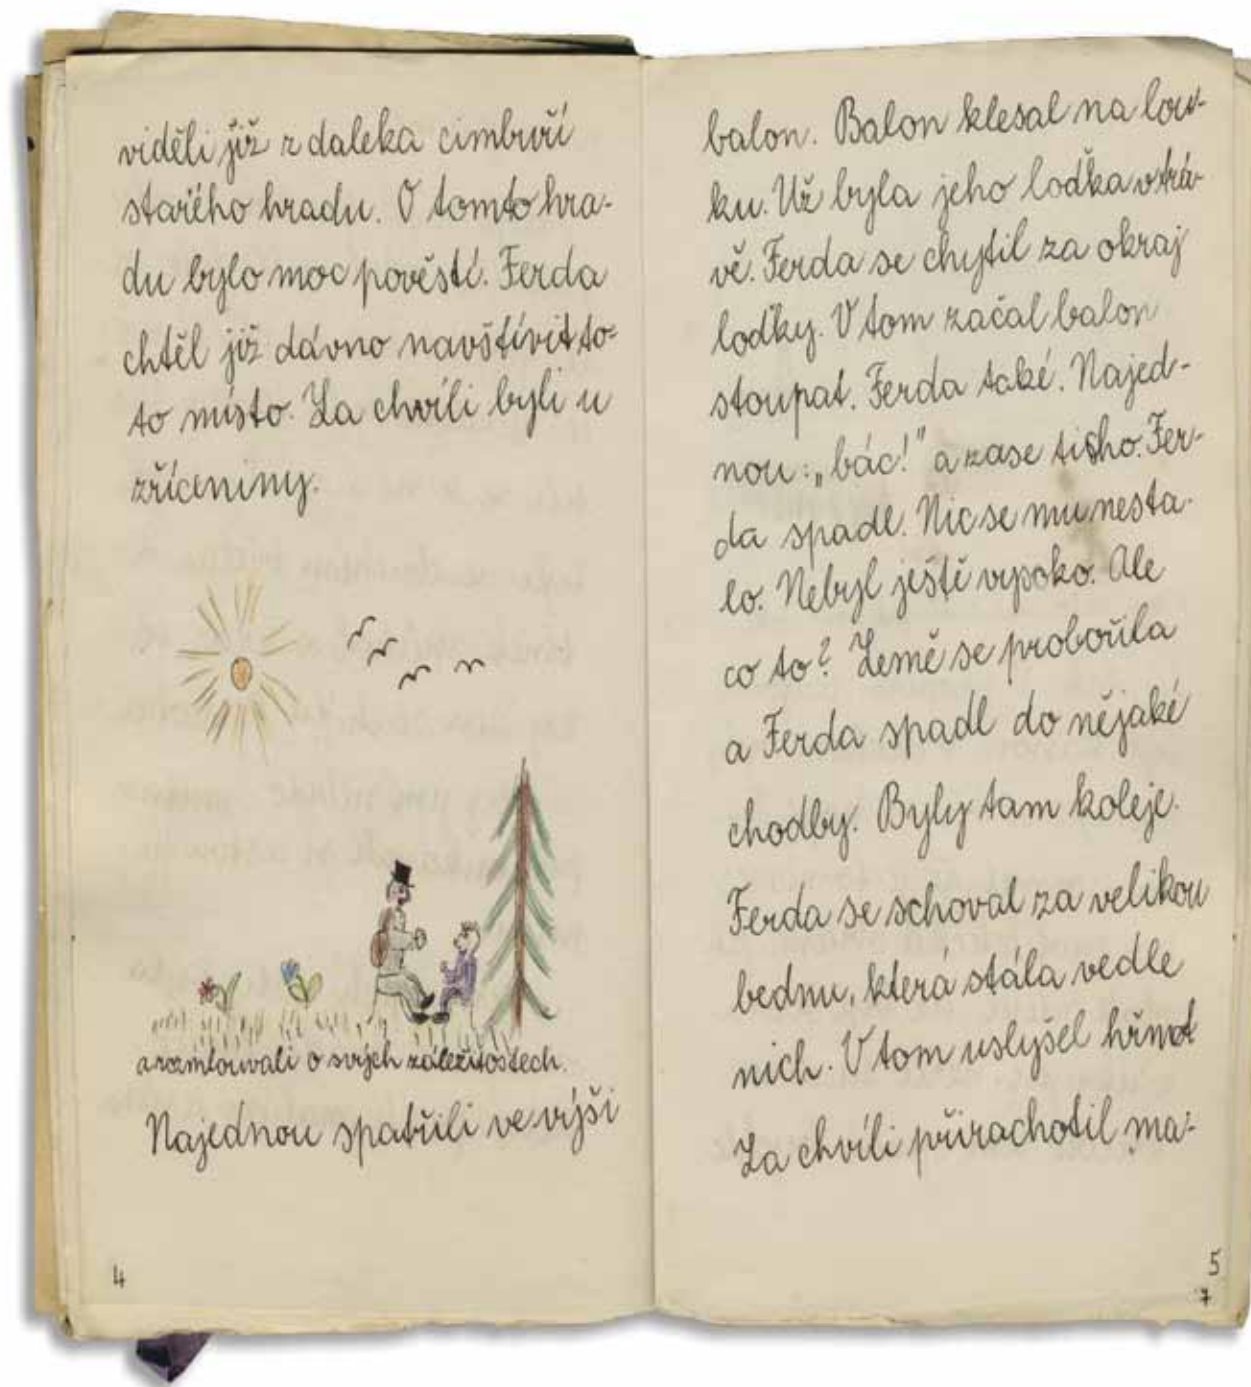 viděli již z daleka cimbuří
starého hradu. O tomto hra-
du bylo moc pověstí. Ferda
chtěl již dávno navštívit to-
to místo. Za chvíli byli u
zříceniny.
a rozmlouvali o svých záležitostech.
Najednou spatřili ve výši
4
balon. Balon klesal na lou-
ku. Už byla jeho loďka v trá-
vě. Ferda se chytil za okraj
loďky. V tom začal balon
stoupat. Ferda také. Najed-
nou: „bác!" a zase ticho. Fer-
da spadl. Nic se mu nesta-
lo. Nebyl ještě vysoko. Ale
co to? Země se probořila
a Ferda spadl do nějaké
chodby. Byly tam koleje.
Ferda se schoval za velikou
bednu, která stála vedle
nich. V tom uslyšel hřmot
Za chvíli přirachotil ma-
5
7